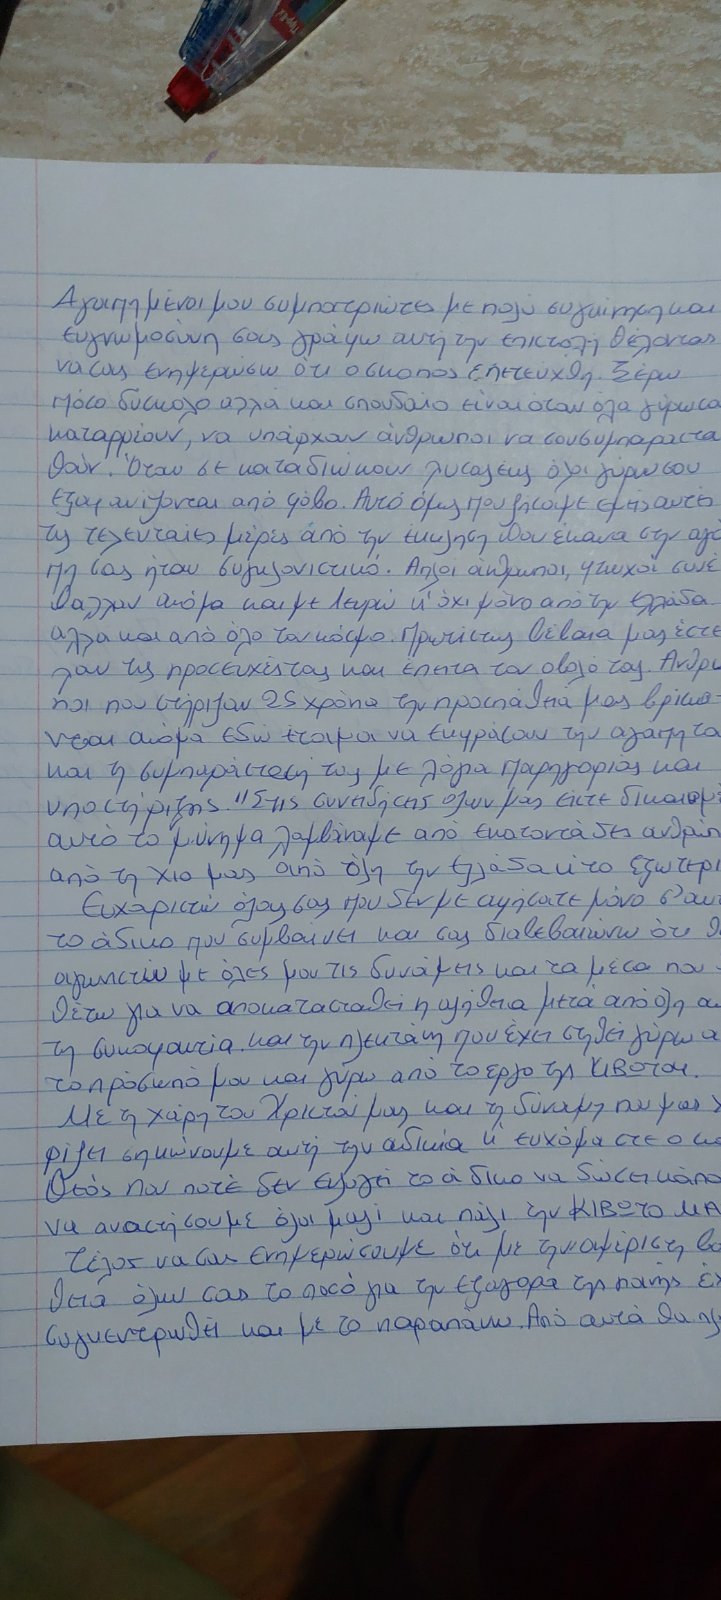 Αγαπημένοι μου συμπατριώτες με πολύ συγκίνηση και
ευγνωμοσύνη σας γράφω αυτή την επιστολή θέλοντας
να σας ενημερώσω ότι ο σκοπός επετεύχθη. Ξέρω
πόσο δύσκολο αλλά και σπουδαίο είναι όταν όλα γύρω σο
καταρρέουν, να υπάρχουν άνθρωποι να σου συμπαραστα
θούν. Όταν σε καταδιώκουν λυσαλέως όλοι γύρω σου
εξαφανίζονται από φόβο. Αυτό όμως που ζήσαμε εμείς αυτές
τις τελευταίες μέρες από την έκκληση που έκανα στην αγά
πη σας ήταν συγκλονιστικό. Απλοί άνθρωποι, φτωχοί συνέ
βαλλαν ακόμα και με 1 ευρώ κ' όχι μόνο από την Ελλάδα
αλλά και από όλο τον κόσμο. Πρωτίστως βέβαια μας έστε
λαν τις προσευχές τους και έπειτα τον οβολό τους. Άνθρω
ποι που στήριξαν 25 χρόνια την προσπάθειά μας βρίσκο-
νται ακόμα εδώ έτοιμοι να εκφράσουν την αγάπη το
και τη συμπαράστασή τους με λόγια παρηγοριάς και
υποστήριξης. "Στις συνειδήσεις όλων μας είστε δικαιωμέ
αυτό το μύνημα λαμβάναμε από εκατοντάδες ανθρώπ
από τη Χίο μας από όλη την Ελλάδα κ' το εξωτερι
Ευχαριστώ όλους σας που δεν με αφήσατε μόνο σ' αυτ
το άδικο που συμβαίνει και σας διαβεβαιώνω ότι θ
αγωνιστώ με όλες μου τις δυνάμεις και τα μέσα που
θέτω για να αποκατασταθεί η αλήθεια μετά από όλη αυ
τη συκοφαντία και την πλεκτάνη που έχει στηθεί γύρω α
το πρόσωπό μου και γύρω από το έργο της ΚΙΒΩΤΟΥ.
Με τη χάρη του Χριστού μας και τη δύναμη που μας χ
ρίζει σηκώνουμε αυτή την αδικία κ' ευχόμαστε ο κα
Θεός που ποτέ δεν ευλογεί το άδικο να δώσει κάπο
να αναστήσουμε όλοι μαζί και πάλι την ΚΙΒΩΤΟ ΜΑ
Τέλος να σας ενημερώσουμε ότι με την αμέριστη βο
θεια όλων σας το ποσό για την εξαγορά της ποινής έχ
συγκεντρωθεί και με το παραπάνω. Από αυτά θα πλ